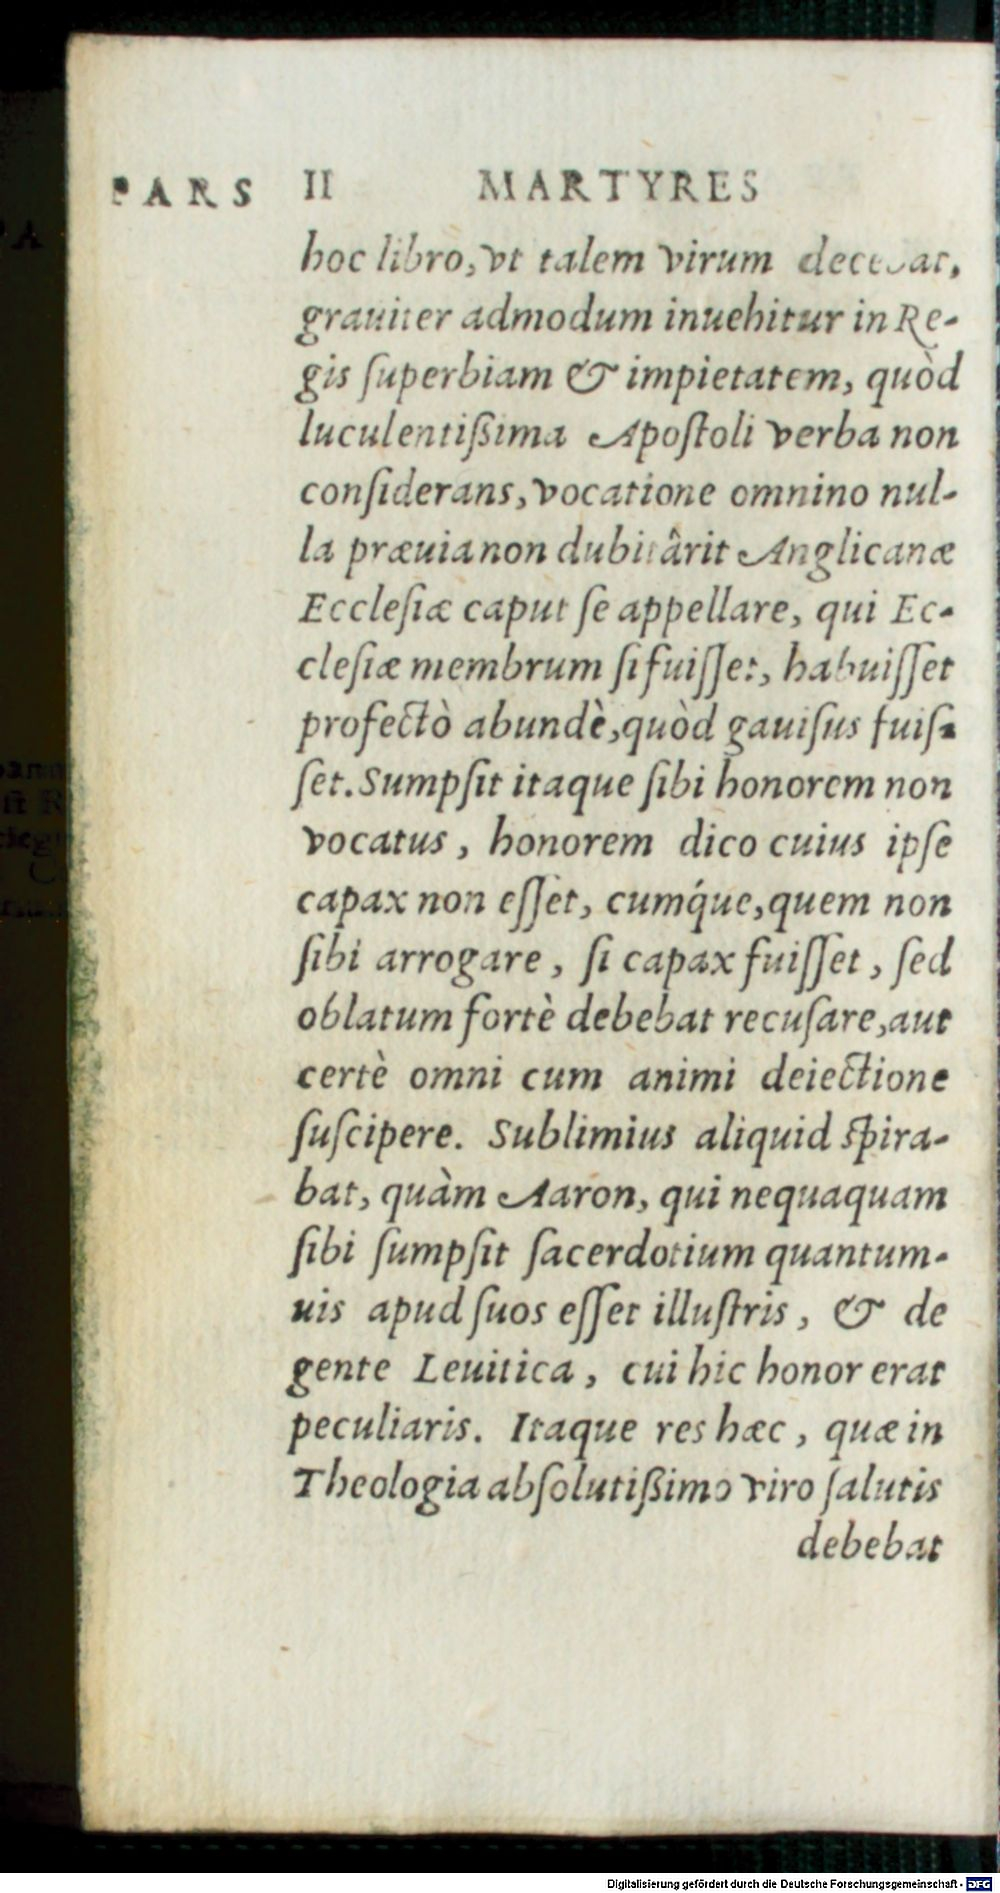 PARS II MARTYRES
hoc libro, vt talem virum decebat,
grauiter admodum inuehitur in Re-
gis ſuperbiam & impietatem, quòd
luculentißima Apoſtoli verba non
conſiderans, vocatione omnino nul-
la præuia non dubitârit Anglicanæ
Eccleſiæ caput ſe appellare, qui Ec-
cleſiæ membrum ſi fuiſſet, habuiſſet
profectò abundè, quòd gauiſus fuiſ-
ſet. Sumpſit itaque ſibi honorem non
vocatus, honorem dico cuius ipſe
capax non eſſèt, cumq́ue, quem non
ſibi arrogare, ſi capax fuiſſet, ſed
oblatum fortè debebat recuſare, aut
certè omni cum animi deiectione
ſuſcipere. Sublimius aliquid ſpira-
bat, quàm Aaron, qui nequaquam
ſibi ſumpſit ſacerdotium quantum-
uis apud ſuos eſſet illuſtris, & de
gente Leuitica, cui hic honor erat
peculiaris. Itaque res hæc, quæ in
Theologia abſolutißimo viro ſalutis
debebat
Digitalisierung gefördert durch die Deutsche Forschungsgemeinschaft - DFG